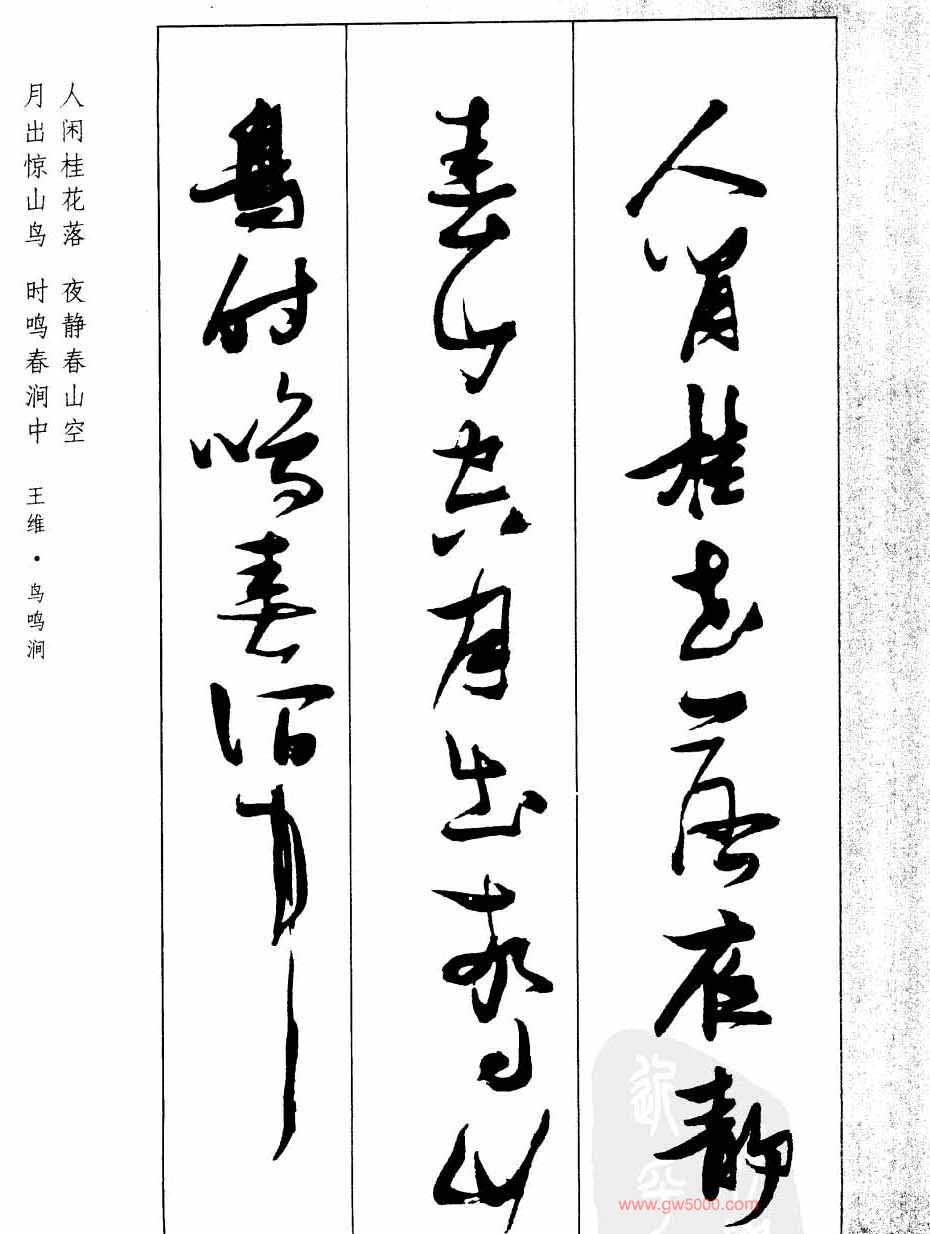 人闲桂花落夜静
春山空月出惊山
鸟时鸣春涧中
人闲桂花落 夜静春山空
月出惊山鸟 时鸣春涧中 王维·鸟鸣涧
www.gw5000.com